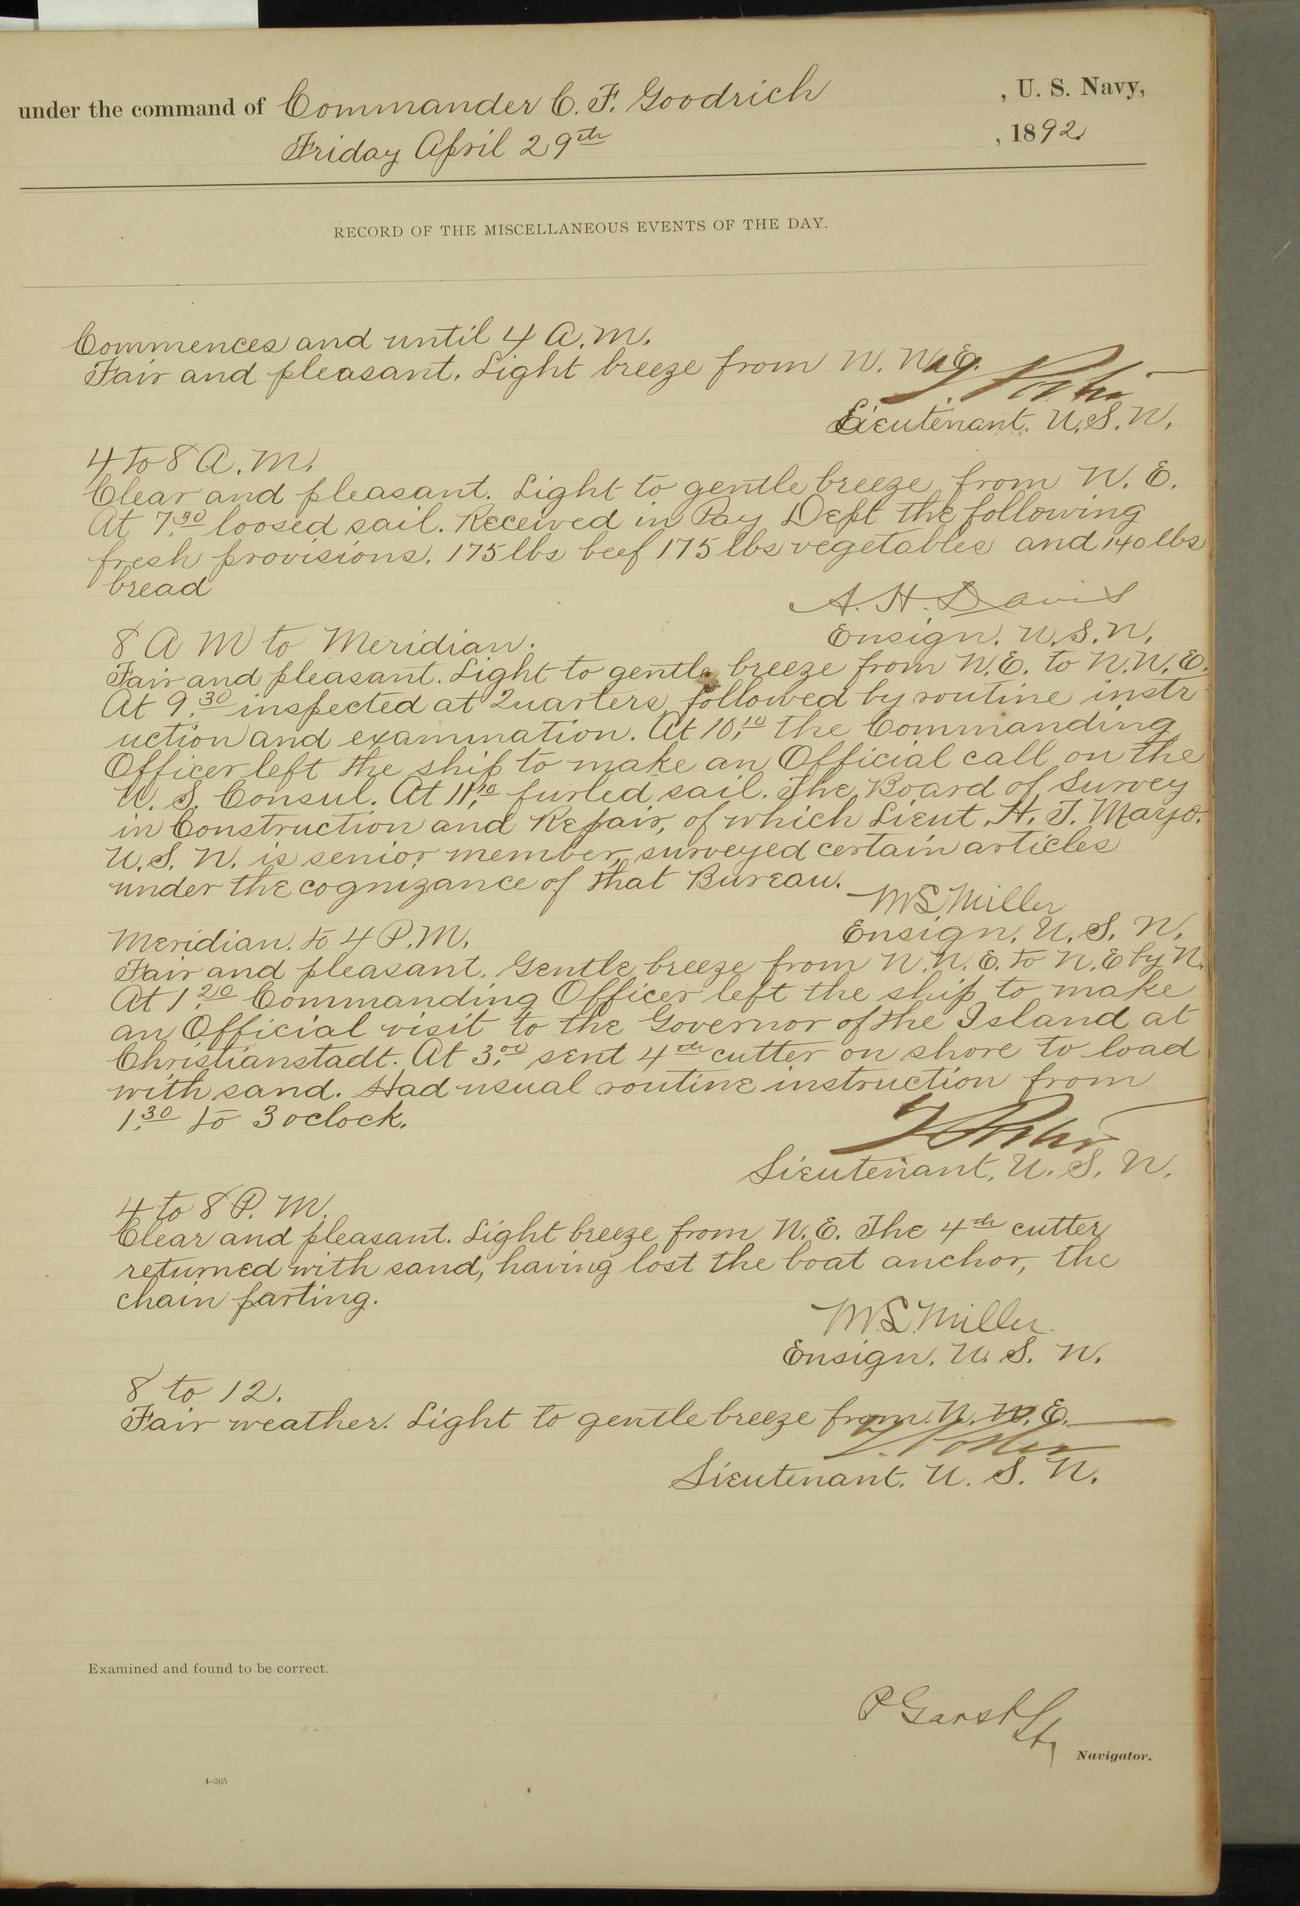 under the command of Commander C. F. Goodrich , U. S. Navy,
Friday April 29th , 1892
RECORD OF THE MISCELLANEOUS EVENTS OF THE DAY.
Commences and until 4 A.M.
Fair and pleasant. Light breeze from N. N. E.
Lieutenant. U.S.N.
4 to 8 A.M.
Clear and pleasant. Light to gentle breeze from N. E.
At 7.30 loosed sail. Received in Pay Dept the following
fresh provisions. 175 lbs beef 175 lbs vegetables and 140 lbs
bread
A. H. Davis
Ensign. U.S.N.
8 A M to Meridian.
Fair and pleasant. Light to gentle breeze from N.E. to N.N.E.
At 9.30 inspected at Quarters, followed by routine instr
uction and examination. At 10.10 the Commanding
Officer left the ship to make an Official call on the
U. S. Consul. At 11.10 furled sail. The Board of Survey
in Construction and Repair, of which Lieut. H. T. Mayo.
U.S. N. is senior member, surveyed certain articles
under the cognizance of that Bureau.
M S Miller
Ensign. U. S. N.
Meridian. to 4 P.M.
Fair and pleasant. Gentle breeze from N.N.E. to N.E by N.
At 1.20 Commanding Officer left the ship to make
an Official visit to the Governor of the Island at
Christianstadt. At 3.00 sent 4th cutter on shore to load
with sand. Had usual routine instruction from
1.30 to 3 oclock.
Lieutenant. U. S. N.
4 to 8 P. M.
Clear and pleasant. Light breeze from N. E. The 4th cutter
returned with sand, having lost the boat anchor, the
chain parting.
M S Miller
Ensign. U. S. N.
8 to 12.
Fair weather. Light to gentle breeze from N. N. E.
Lieutenant. U. S. N.
Examined and found to be correct.
P Garst Lt
Navigator.
4-265